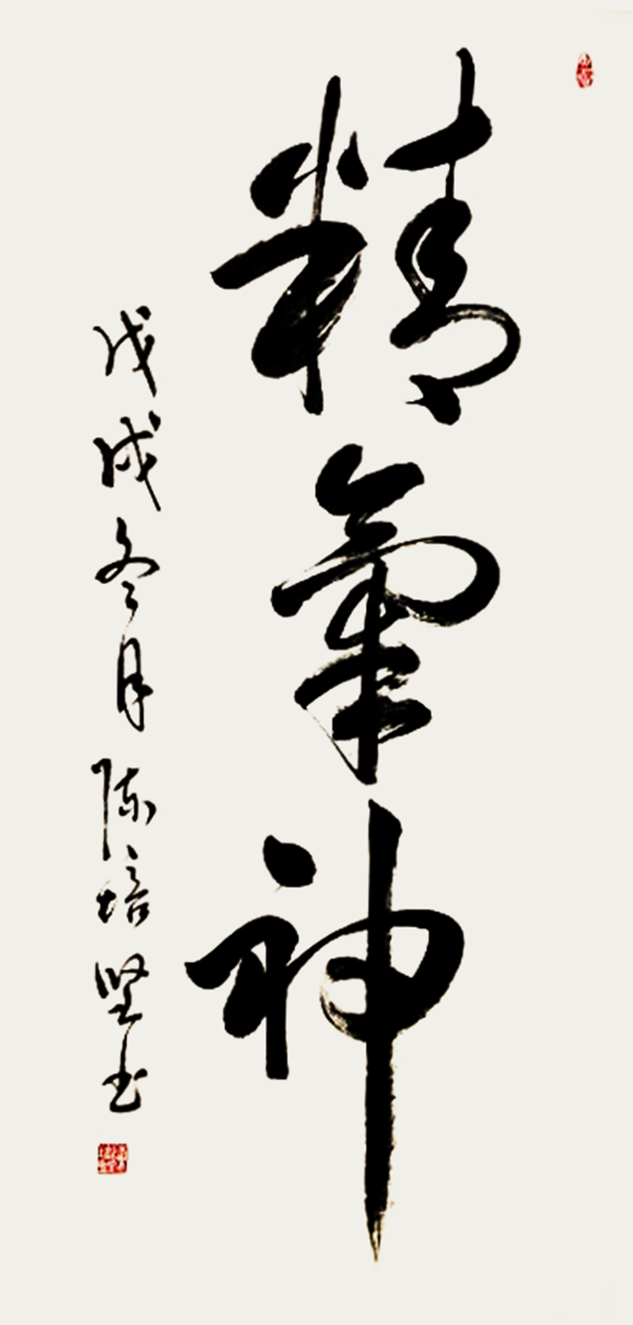 精氣神
戊戌冬月陈培坚书